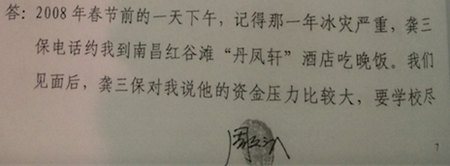 答：2008年春节前的一天下午，记得那一年冰灾严重，龚三
保电话约我到南昌红谷滩“丹凤轩”酒店吃晚饭。我们
见面后，龚三保对我说他的资金压力比较大，要学校尽
7